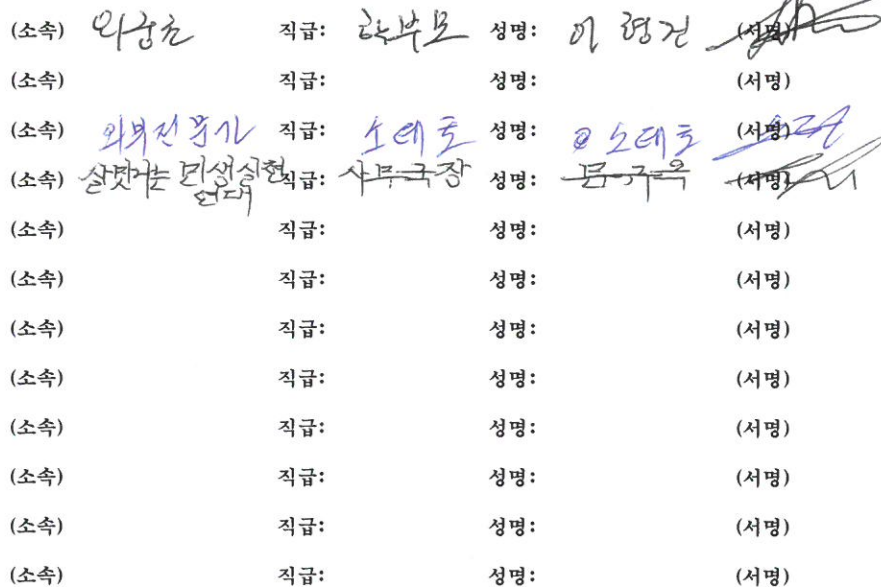 (소속) 외궁초 직급: 학부모 성명: 이형건 (서명)
(소속) 직급: 성명: (서명)
(소속) 외부전문가 직급: 소태호 성명: 소태호 (서명)
(소속) 살맛나는 민생실현 직급: 사무국장 성명: (서명)
연대
(소속) 직급: 성명: (서명)
(소속) 직급: 성명: (서명)
(소속) 직급: 성명: (서명)
(소속) 직급: 성명: (서명)
(소속) 직급: 성명: (서명)
(소속) 직급: 성명: (서명)
(소속) 직급: 성명: (서명)
(소속) 직급: 성명: (서명)